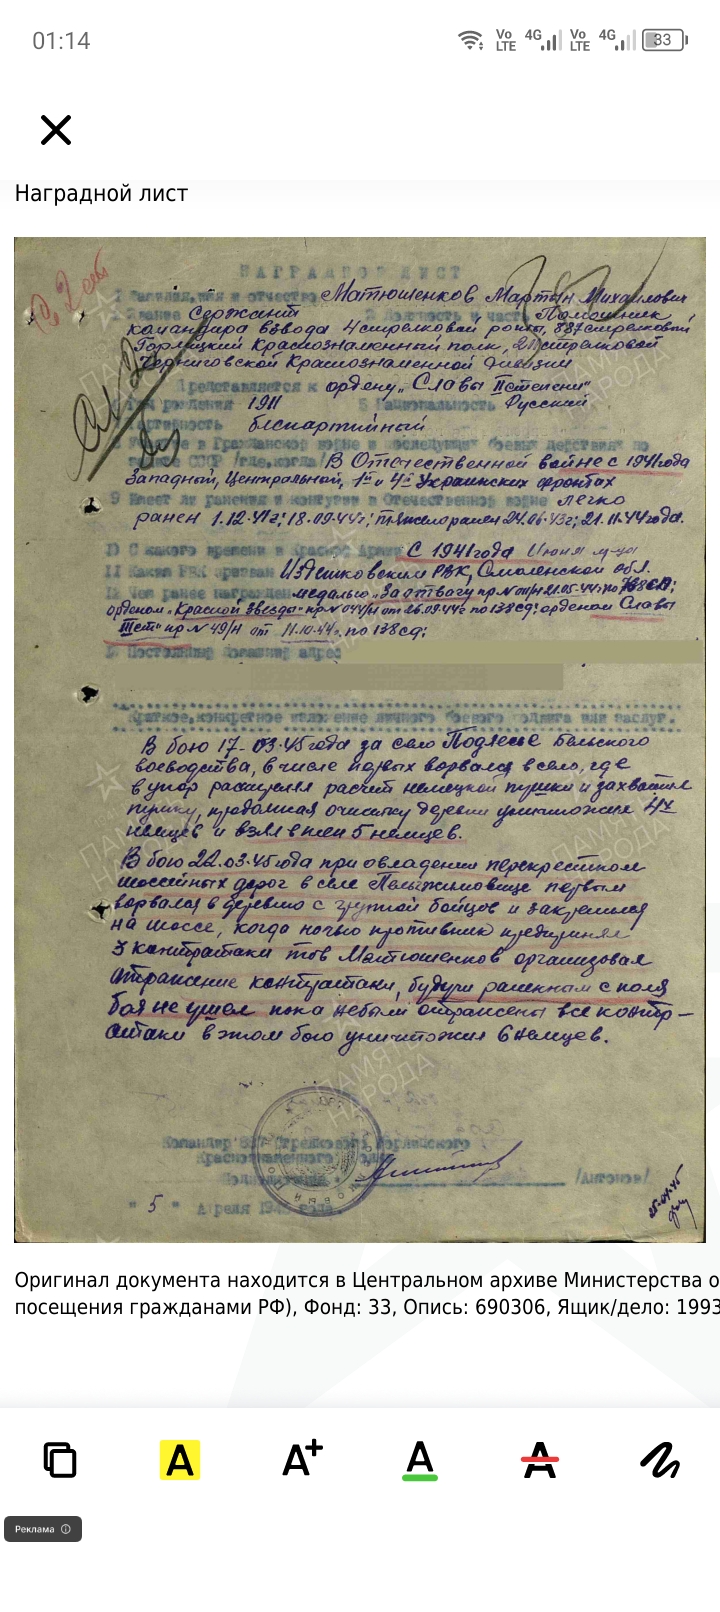 01:14
Vo LTE 4G Vo LTE 4G 33
Наградной лист
НАГРАДНОЙ ЛИСТ
1 Фамилия, имя и отчество Матюшенков Мартын Михайлович
2 Звание Сержант 3 Должность и часть Помощник
командира взвода 4 стрелковой роты, 887 стрелковый
Горлицкий Краснознаменный полк, 211 стрелковой
Черниговской Краснознаменной дивизии
Представляется к ордену „Славы II степени"
рождения 1911 5 Национальность Русский
беспартийный
Участие в Гражданской войне и последующих боевых действиях по
СССР /где, когда/ В Отечественной войне с 1941 года
Западной, Центральной, 1й и 4й Украинских фронтах
9 Имеет ли ранения и контузии в Отечественной войне легко
ранен 1.12.41г; 18.09.44г; тяжело ранен 24.06.43г; 21.11.44 года.
С какого времени в Красной Армии С 1941 года Июня м-ца
11 Каким РВК призван Издешковским РВК, Смоленской обл.
12 Чем ранее награжден медалью „За отвагу" пр. N 21.05.44г по 138 СД;
орденом „Красной Звезды" пр. N 044/Н от 26.09.44г по 138 сд; орденом Славы
III ст" пр N 49/Н от 11.10.44г. по 138 сд;
Постоянный домашний адрес
Краткое, конкретное изложение личного боевого подвига или заслуг.
В бою 17-03.45 года за село Подлесье Бельского
воеводства, в числе первых ворвался в село, где
в упор расстрелял расчет немецкой пушки и захватил
пушку, продолжая очистку деревни уничтожил 4х
немцев и взял в плен 5 немцев.
В бою 22.03.45 года при овладении перекрестком
шоссейных дорог в селе первым
ворвался в деревню с группой бойцов и закрепился
на шоссе, когда ночью противник предпринял
3 контратаки тов Матюшенков организовал
отражение контратаки, будучи раненным с поля
боя не ушел пока небыли отражены все контр-
атаки в этом бою уничтожил 6 немцев.
Командир 887 Стрелкового Горлицкого
Краснознаменного полка
Подполковник /Антонов/
" 5 " Апреля 194 года
25.04.45
ПАМЯТЬ НАРОДА
Оригинал документа находится в Центральном архиве Министерства о
посещения гражданами РФ), Фонд: 33, Опись: 690306, Ящик/дело: 1993
A A+ A A
Реклама